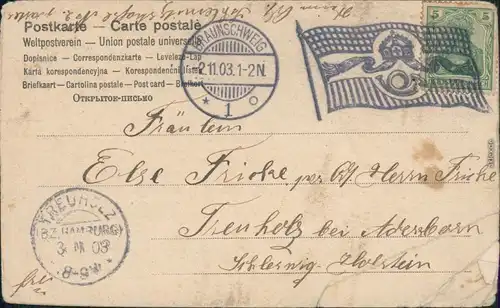 Postkarte – Carte postale
Weltpostverein – Union postale universelle
Dopisnice – Correspondenzkarte – Levelező-Lap
Karta korespondencyjna – Korespondenční lístek
Briefkart – Cartolina postale – Post card – Brefkort
Открытое письмо
BRAUNSCHWEIG
2.11.03.1-2N.
* 1 o
5 5
Fräulein
Else Fricke per Adr. Herrn Fricke
Treuholz bei
Schleswig-Holstein
TREUHOLZ
BZ. HAMBURG
3 11 03
8-9V
frei